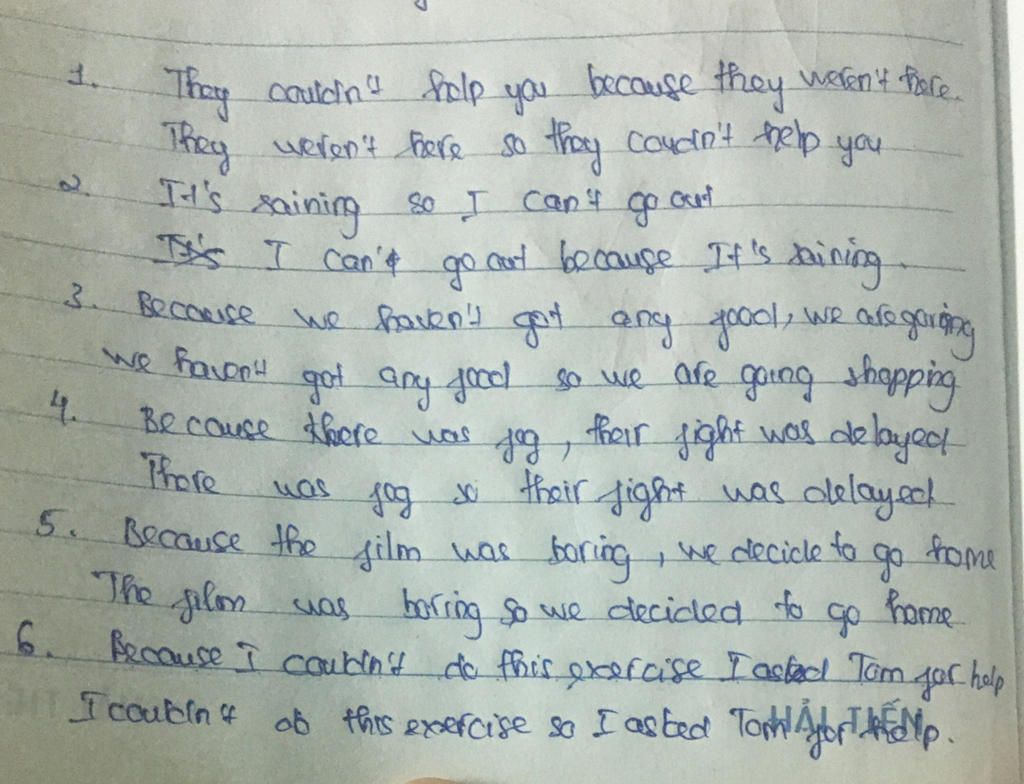 1. They couldn't help you because they weren't here.
They weren't here so they coudn't help you
2. It's raining so I can't go out
It's I can't go out because It's raining.
3. Because we haven't got any food, we are going
we haven't got any food so we are going shopping
4. Because there was fog, their fight was delayed
There was fog so their fight was delayed
5. Because the film was boring, we decide to go home
The film was boring so we decided to go home
6. Because I couldn't do this exercise I asked Tom for help
I couldn't do this exercise so I asked Tom for help.
HẢI TIẾN